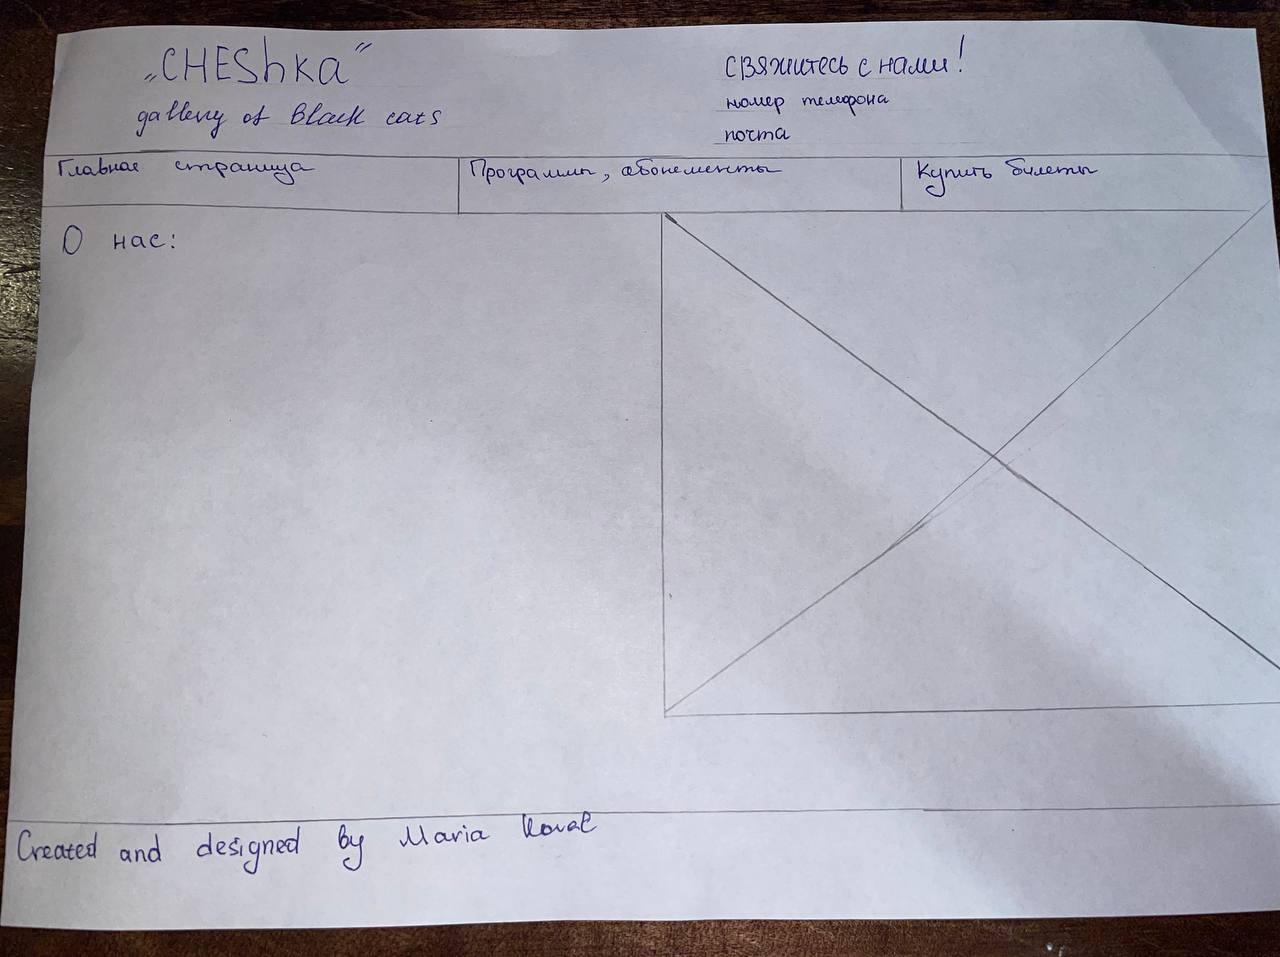 „CHEShKa”
gallery of Black cats
свяжитесь с нами!
номер телефона
почта
Главная страница
Программы, абонементы
Купить билеты
О нас:
Created and designed by Maria Koval